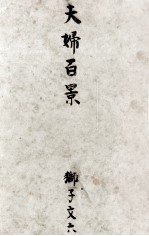 夫婦百景
獅子文六